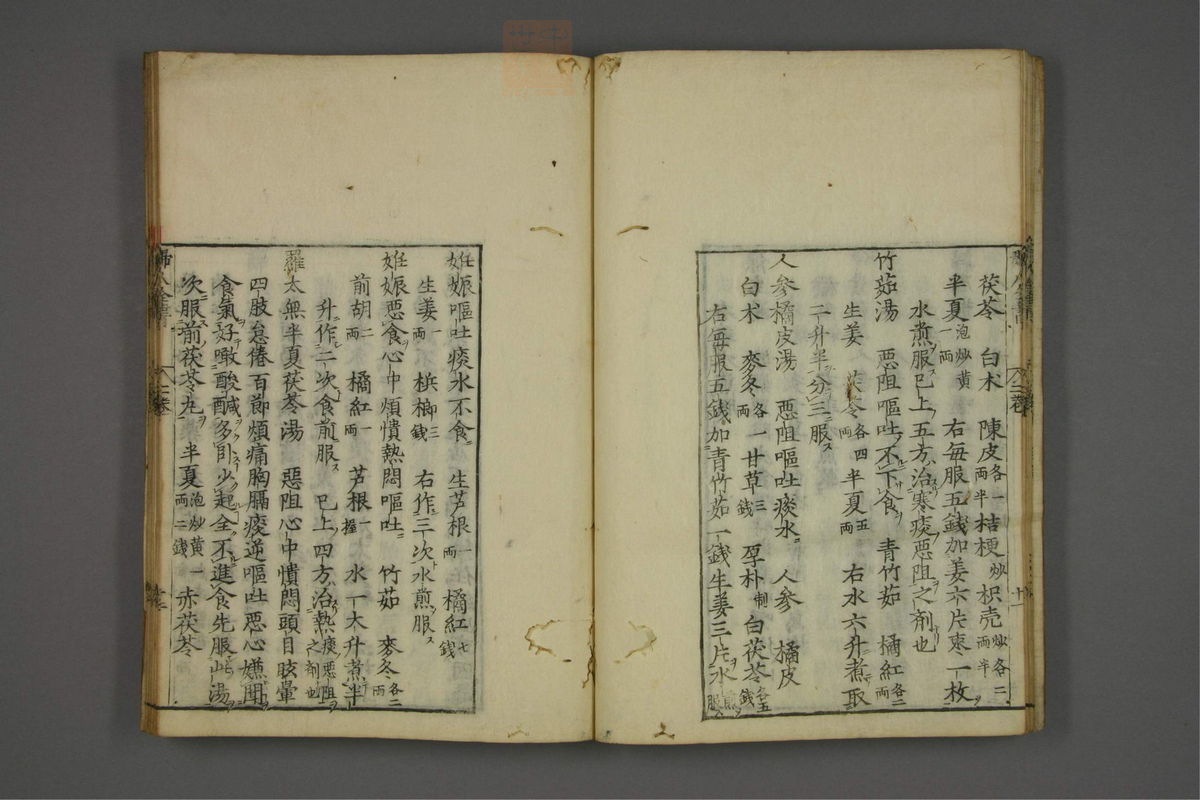 茯苓 白术 陳皮各一両半 桔梗炒 枳壳炒各二両半
半夏泡炒黄一両 右每服五錢加姜六片棗一枚
水煎服巳上五方治寒痰惡阻之剤也
竹茹湯 惡阻嘔吐不下食 青竹茹 橘紅各二両
生姜 茯苓各四両 半夏五両 右水六升煮取
二升半分三服
人參橘皮湯 惡阻嘔吐痰水 人參 橘皮
白术 麥冬各一両 甘草三錢 厚朴制 白茯苓各五錢
右每服五錢加青竹茹一錢生姜三片水煎服
妊娠嘔吐痰水不食 生芦根一両 橘紅七錢
生姜一両 槟榔三錢 右作三次水煎服
妊娠惡食心中煩憒熱悶嘔吐 竹茹 麥冬各二両
前胡二両 橘紅一両 芦根一握 水一大升煮半
升作二次食前服 巳上四方治熱痰惡阻之剤也
羅太無半夏茯苓湯 惡阻心中憒悶頭目眩暈
四肢怠倦百節煩痛胸膈痰逆嘔吐惡心嫌聞
食氣好噉酸鹹多卧少起全不進食先服此湯
次服前茯苓丸 半夏泡炒黄一両二錢 赤茯苓